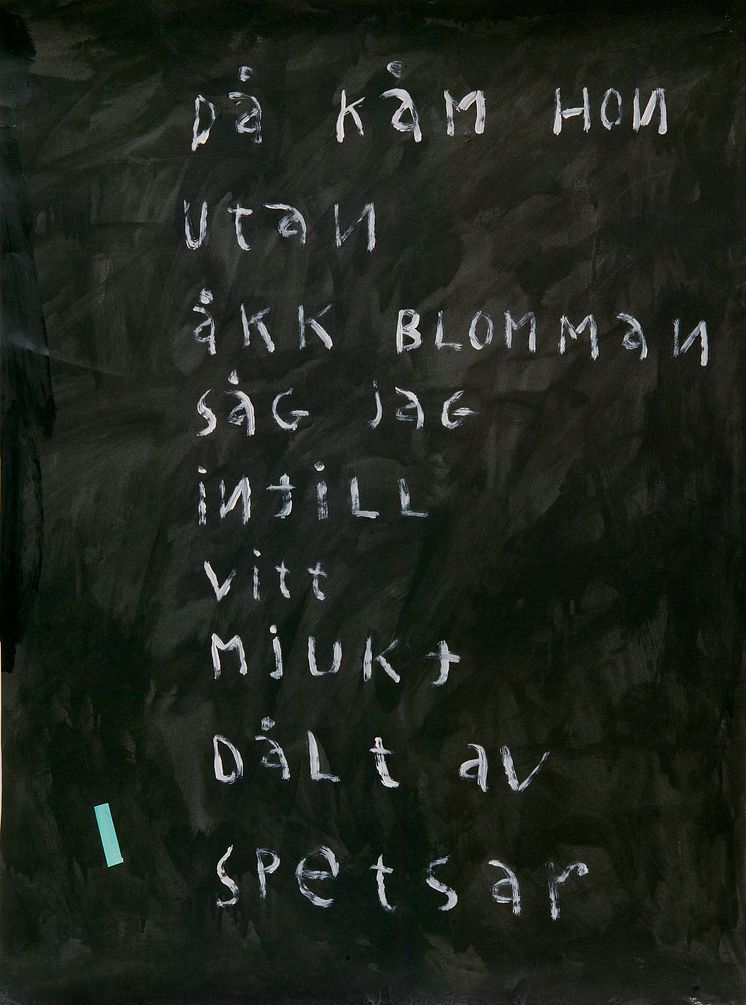 Då kåm HON
utan
åkk BLOMMan
såg jag
intill
vitt
Mjukt
DåLt av
spetsar